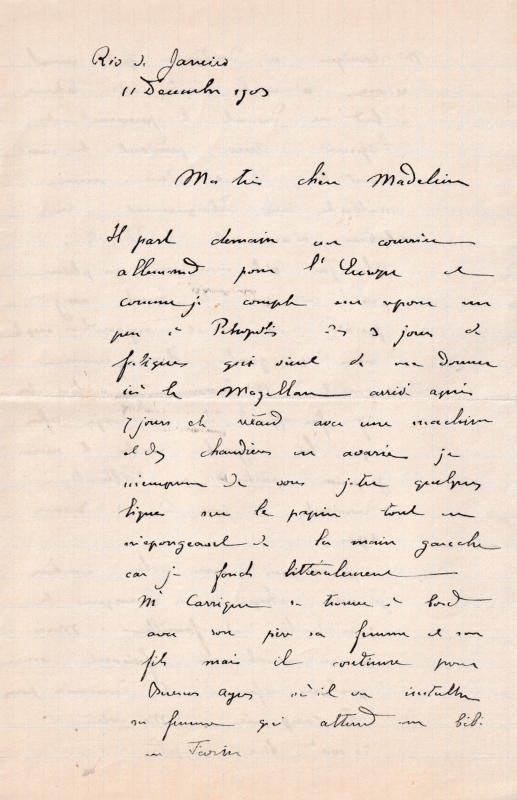 Rio de Janeiro
11 Décembre 1903
Ma très chère Madeleine
Il part demain un courrier
allemand pour l'Europe et
comme je compte me reposer un
peu à Petropolis des 3 jours de
fatigues que vient de me donner
ici le Magellan arrivé après
7 jours de retard avec une machine
et des chaudières en avaries je
m'empresse de vous jeter quelques
lignes sur le papier tout en
m'épongeant de la main gauche
car je fonds littéralement
Mr Carrigue se trouve à bord
avec son père sa femme et son
fils mais il continue pour
Buenos ayres où il va installer
sa femme qui attend un bébé
en Février